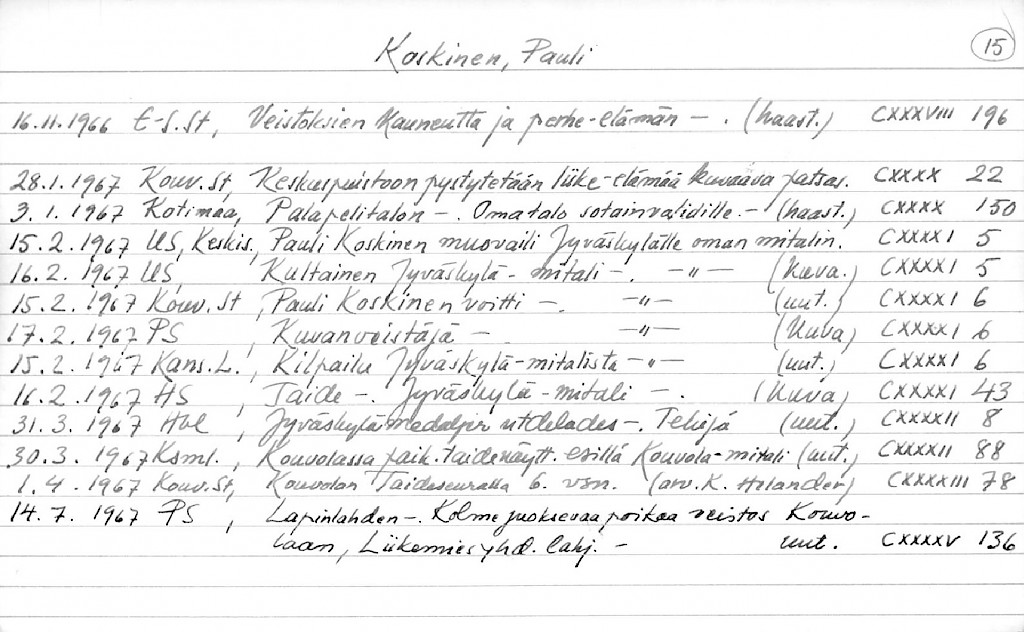 15
Koskinen, Pauli
16.11.1966 E-S.St, Veistoksien kauneutta ja perhe-elämän - . (haast.) CXXXVIII 196
28.1.1967 Kouv.St, Keskuspuistoon pystytetään liike-elämää kuvaava patsas. CXXXX 22
3.1.1967 Kotimaa, Palapelitalon - . Omatalo sotainvalidille. - (haast.) CXXXX 150
15.2.1967 US, Keskis., Pauli Koskinen muovaili Jyväskylälle oman mitalin. CXXXXI 5
16.2.1967 US, Kultainen Jyväskylä-mitali - . -"- (kuva.) CXXXXI 5
15.2.1967 Kouv.St, Pauli Koskinen voitti - . -"- (uut.) CXXXXI 6
17.2.1967 PS, Kuvanveistäjä - -"- (kuva) CXXXXI 6
15.2.1967 Kans.L., Kilpailu Jyväskylä-mitalista -"- (uut.) CXXXXI 6
16.2.1967 HS, Taide - . Jyväskylä-mitali - . (kuva) CXXXXI 43
31.3.1967 Hbl, Jyväskylämedaljer utdelades - . Tekijä (uut.) CXXXXII 8
30.3.1967 Ksml., Kouvolassa paik. taidenäytt. esillä Kouvola-mitali (uut.) CXXXXII 88
1.4.1967 Kouv.St, Kouvolan Taideseuralla 6. vsn. (arv. K. Helander) CXXXXIII 78
14.7.1967 PS, Lapinlahden - . Kolme juoksevaa poikaa veistos Kouvo-
laan, Liikemiesyhd. lahj. - uut. CXXXXV 136